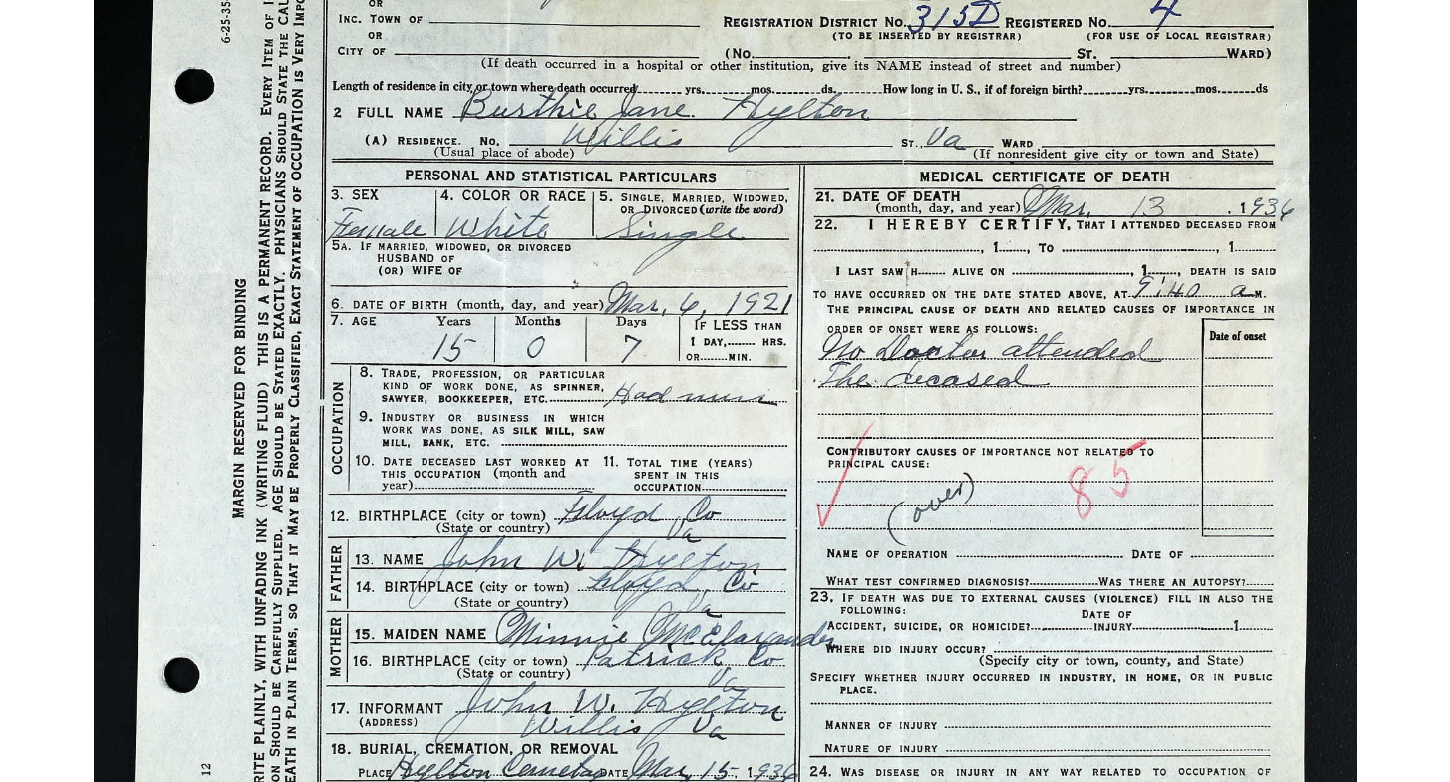 OR
INC. TOWN OF
REGISTRATION DISTRICT NO. 315D REGISTERED NO. 4
OR
(TO BE INSERTED BY REGISTRAR) (FOR USE OF LOCAL REGISTRAR)
CITY OF (No. ST. WARD)
(If death occurred in a hospital or other institution, give its NAME instead of street and number)
Length of residence in city or town where death occurred yrs. mos. ds. How long in U. S., if of foreign birth? yrs. mos. ds
2 FULL NAME Burthie Jane Hylton
(A) RESIDENCE. No. Willis ST., Va WARD
(Usual place of abode) (If nonresident give city or town and State)
PERSONAL AND STATISTICAL PARTICULARS
3. SEX 4. COLOR OR RACE 5. SINGLE, MARRIED, WIDOWED,
OR DIVORCED (write the word)
Female White Single
5A. IF MARRIED, WIDOWED, OR DIVORCED
HUSBAND OF
(OR) WIFE OF
6. DATE OF BIRTH (month, day, and year) Mar, 6, 1921
7. AGE Years Months Days IF LESS THAN
15 0 7 1 DAY, HRS.
OR MIN.
OCCUPATION
8. TRADE, PROFESSION, OR PARTICULAR
KIND OF WORK DONE, AS SPINNER,
SAWYER, BOOKKEEPER, ETC. Had
9. INDUSTRY OR BUSINESS IN WHICH
WORK WAS DONE, AS SILK MILL, SAW
MILL, BANK, ETC.
10. DATE DECEASED LAST WORKED AT 11. TOTAL TIME (YEARS)
THIS OCCUPATION (month and SPENT IN THIS
year) OCCUPATION
12. BIRTHPLACE (city or town) Floyd Co
(State or country) Va
FATHER
13. NAME John W. Hylton
14. BIRTHPLACE (city or town) Floyd Co
(State or country) Va
MOTHER
15. MAIDEN NAME Minnie McElaxander
16. BIRTHPLACE (city or town) Patrick Co
(State or country) Va
17. INFORMANT John W. Hylton
(ADDRESS) Willis Va
18. BURIAL, CREMATION, OR REMOVAL
PLACE Hylton Cemetary DATE Mar, 15, 1936
MEDICAL CERTIFICATE OF DEATH
21. DATE OF DEATH
(month, day, and year) Mar, 13, 1936
22. I HEREBY CERTIFY, THAT I ATTENDED DECEASED FROM
, 1 , TO , 1
I LAST SAW H ALIVE ON , 1 , DEATH IS SAID
TO HAVE OCCURRED ON THE DATE STATED ABOVE, AT 9:40 a M.
THE PRINCIPAL CAUSE OF DEATH AND RELATED CAUSES OF IMPORTANCE IN
ORDER OF ONSET WERE AS FOLLOWS: Date of onset
No Docter attended
The deceased
CONTRIBUTORY CAUSES OF IMPORTANCE NOT RELATED TO
PRINCIPAL CAUSE:
85
(over)
NAME OF OPERATION DATE OF
WHAT TEST CONFIRMED DIAGNOSIS? WAS THERE AN AUTOPSY?
23. IF DEATH WAS DUE TO EXTERNAL CAUSES (VIOLENCE) FILL IN ALSO THE
FOLLOWING:
DATE OF
ACCIDENT, SUICIDE, OR HOMICIDE? INJURY 1
WHERE DID INJURY OCCUR?
(Specify city or town, county, and State)
SPECIFY WHETHER INJURY OCCURRED IN INDUSTRY, IN HOME, OR IN PUBLIC
PLACE.
MANNER OF INJURY
NATURE OF INJURY
24. WAS DISEASE OR INJURY IN ANY WAY RELATED TO OCCUPATION OF
6-25-35
MARGIN RESERVED FOR BINDING
RITE PLAINLY, WITH UNFADING INK (WRITING FLUID) THIS IS A PERMANENT RECORD. EVERY ITEM OF I
ON SHOULD BE CAREFULLY SUPPLIED. AGE SHOULD BE STATED EXACTLY. PHYSICIANS SHOULD STATE THE CAU
EATH IN PLAIN TERMS, SO THAT IT MAY BE PROPERLY CLASSIFIED, EXACT STATEMENT OF OCCUPATION IS VERY IMPO
12